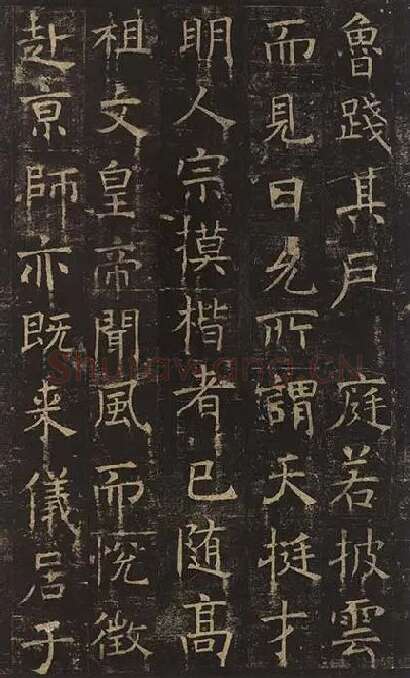 魯踐其戶庭若披雲
而見日允所謂天挺才
明人宗摸楷者已随高
祖文皇帝聞風而悅徵
赴亰師亦既来儀居于